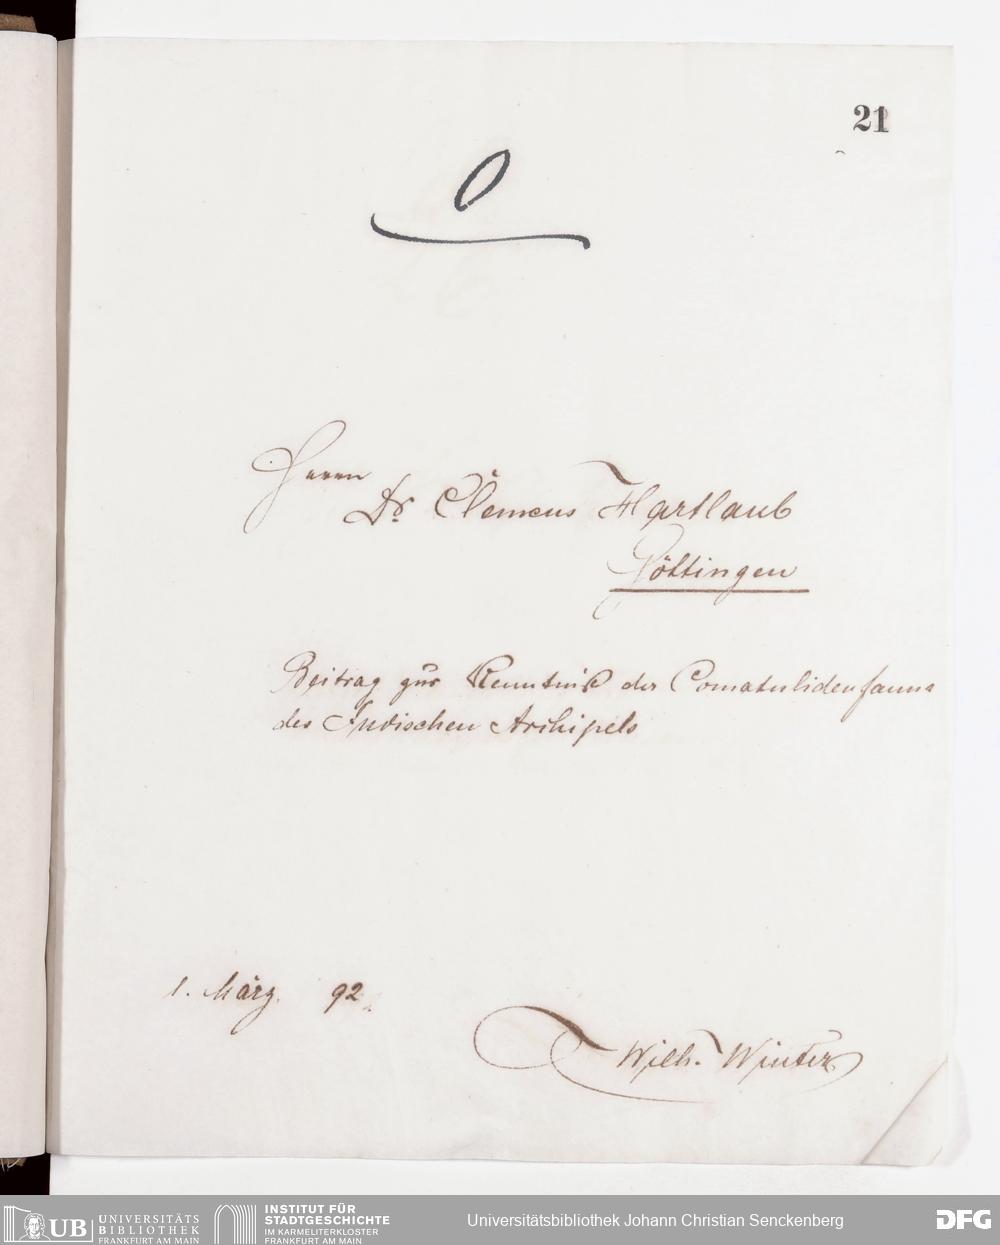 21
0
Herrn
Dr. Clemens Hartlaub
Göttingen
Beitrag zur Kenntniß der Comatulidenfauna
des Indischen Archipels
1. März. 92.
Wilh. Winter
UB UNIVERSITÄTS
BIBLIOTHEK
FRANKFURT AM MAIN
INSTITUT FÜR
STADTGESCHICHTE
IM KARMELITERKLOSTER
FRANKFURT AM MAIN
Universitätsbibliothek Johann Christian Senckenberg
DFG